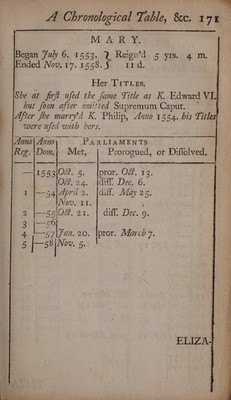 A Chronological Table, &c. 171
MARY.
Began July 6. 1553. } Reign'd 5 yrs. 4 m.
Ended Nov. 17. 1558. } 11 d.
Her TITLES.
She at first used the same Title as K. Edward VI.
but soon after omitted Supremum Caput.
After she marry'd K. Philip, Anno 1554. his Titles
were used with hers.
Anno Anno PARLIAMENTS
Reg. Dom. Met, Prorogued, or Dissolved.
— 1553 Oct. 5. pror. Oct. 13.
Oct. 24. diss. Dec. 6.
1 —54 April 2. diss. May 25.
Nov. 11.
2 —55 Oct. 21. diss. Dec. 9.
3 —56
4 —57 Jan. 20. pror. March 7.
5 —58 Nov. 5.
ELIZA-